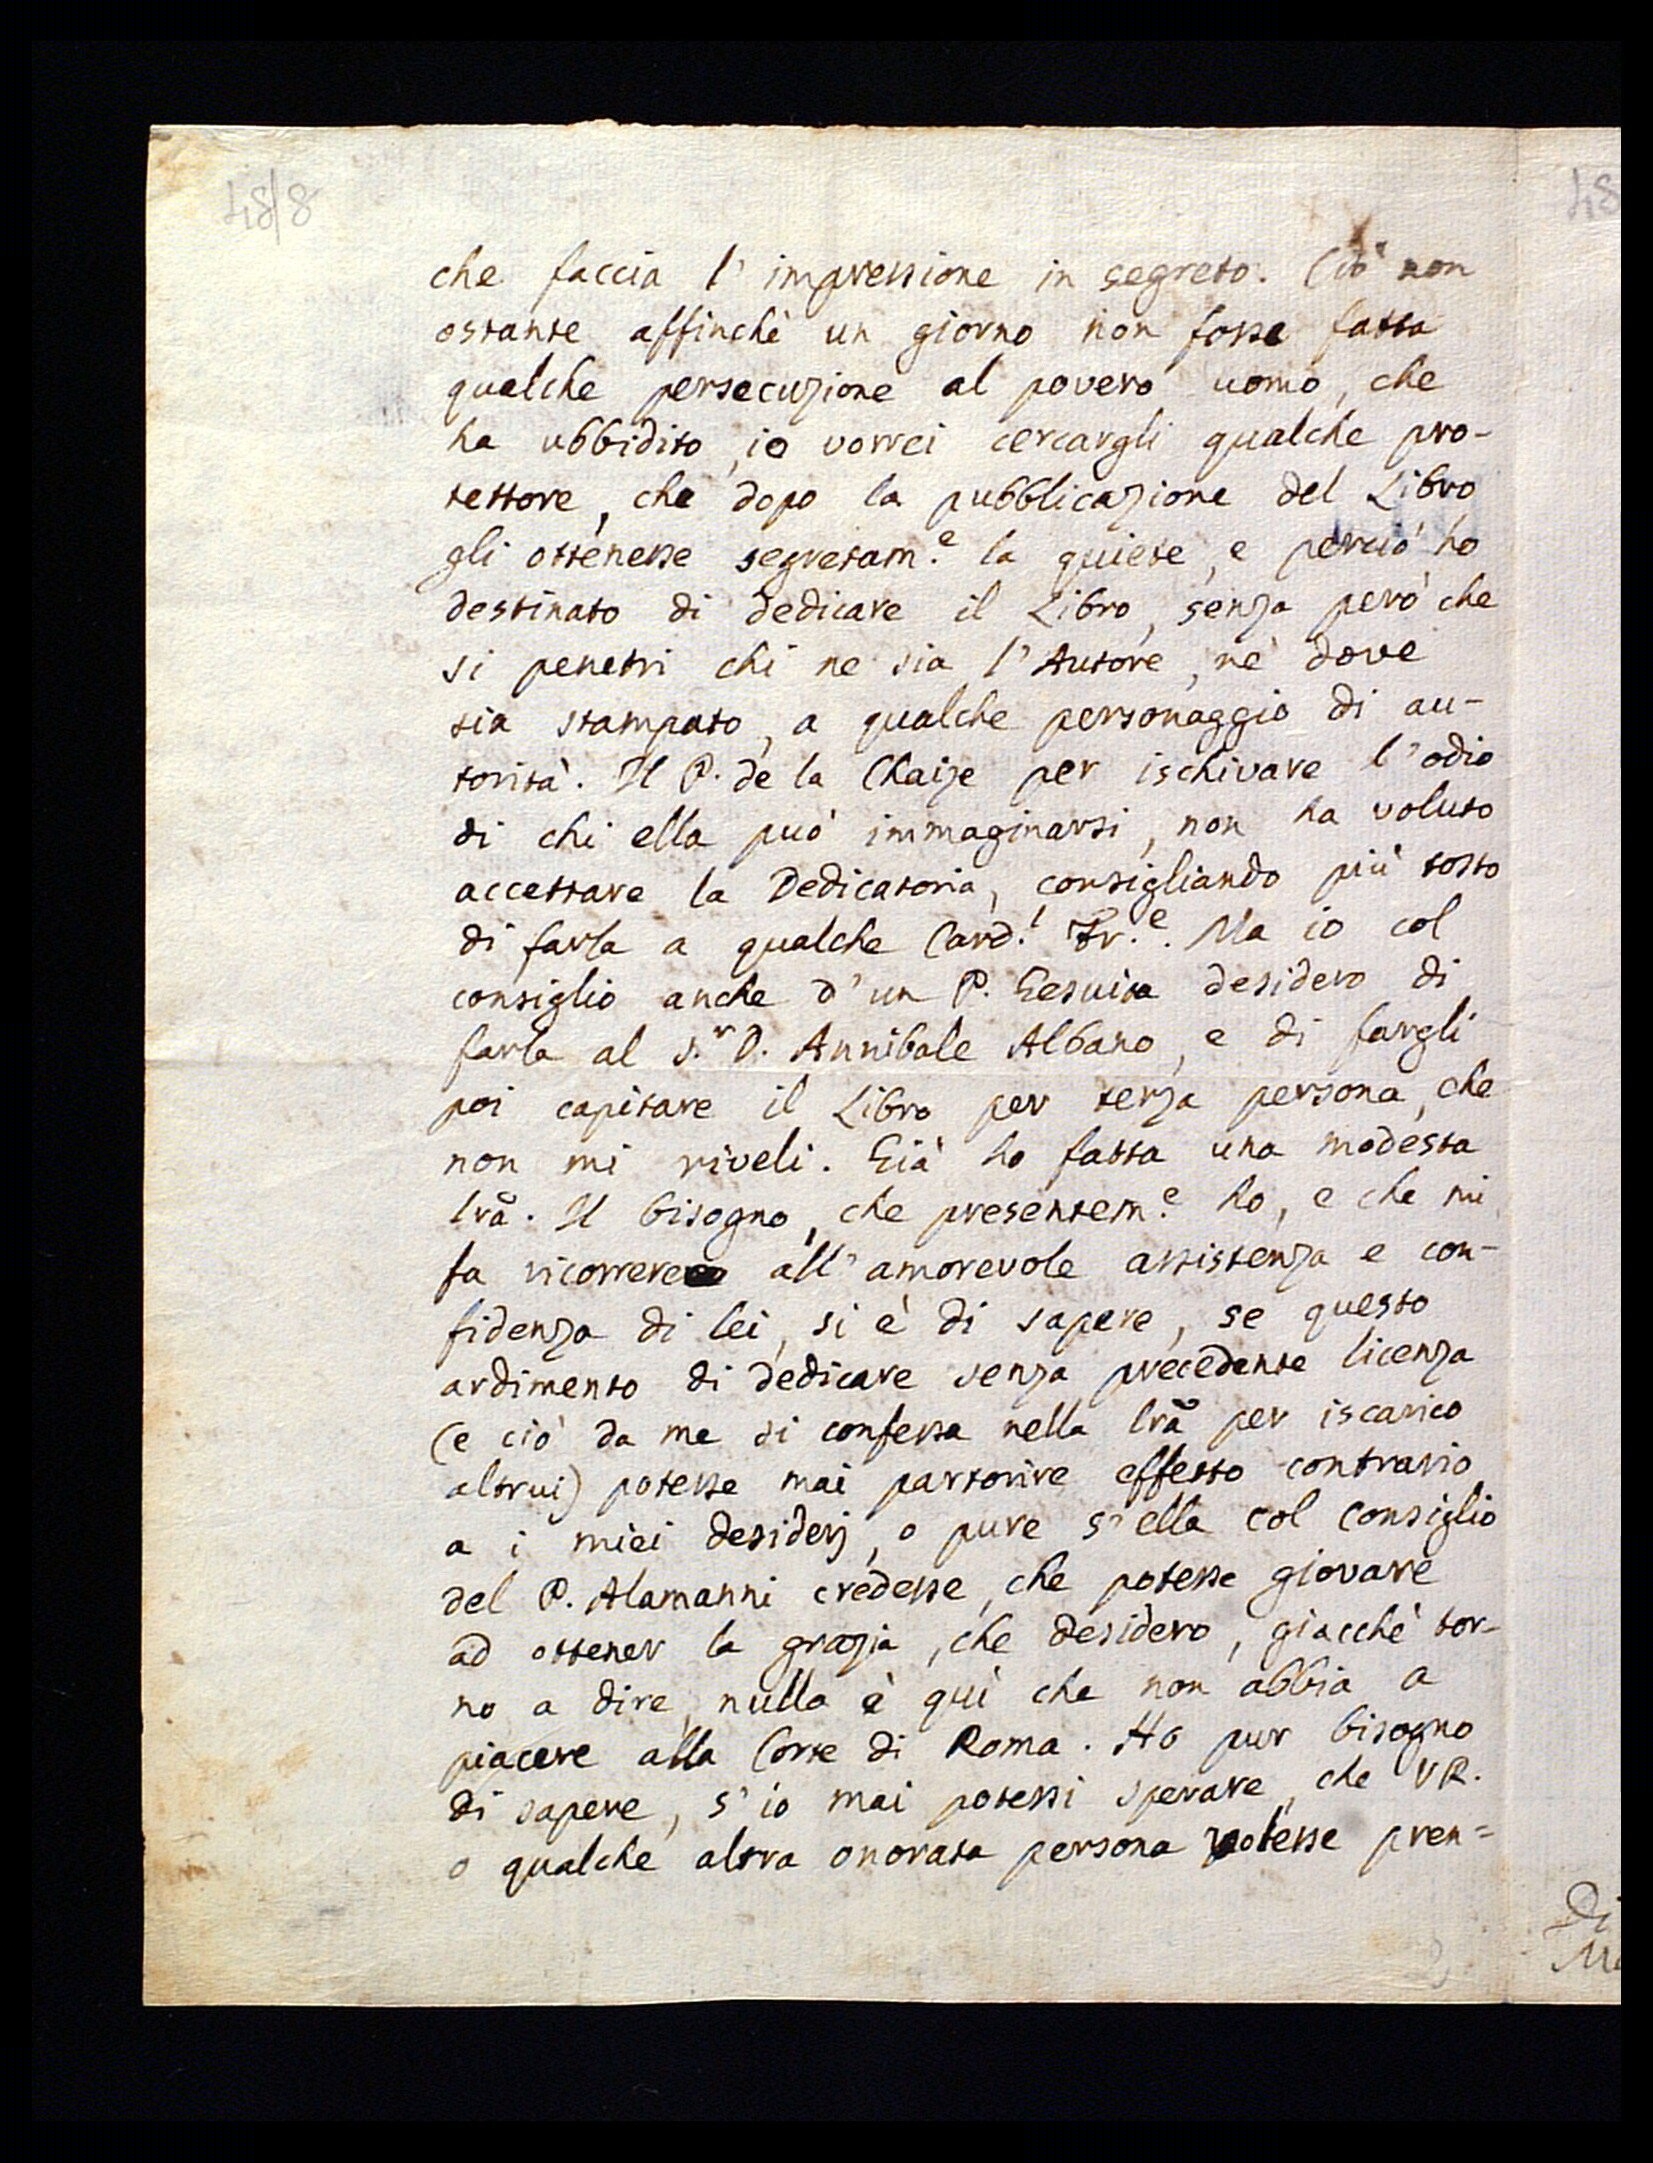 48/8
che faccia l' impressione in segreto. Ciò non
ostante affinchè un giorno non fosse fatta
qualche persecuzione al povero uomo, che
ha ubbidito, io vorrei cercargli qualche pro-
tettore, che dopo la pubblicazione del Libro
gli ottenesse segretam.e la quiete, e perciò ho
destinato di dedicare il Libro, senza però che
si penetri chi ne sia l'Autore, nè dove
sia stampato, a qualche personaggio di au-
torità. Il P. de la Chaize per ischivare l'odio
di chi ella può immaginarsi, non ha voluto
accettare la Dedicatoria, consigliando più tosto
di farla a qualche Card.l Fr.e. Ma io col
consiglio anche d'un P. Gesuita desidero di
farla al S.r D. Annibale Albano, e di fargli
poi capitare il Libro per terza persona, che
non mi riveli. Già ho fatta una modesta
lrã. Il bisogno, che presentem.e ho, e che mi
fa ricorrere all'amorevole assistenza e con-
fidenza di lei, si è di sapere, se questo
ardimento di dedicare senza precedente licenza
(e ciò da me si confessa nella lrã per iscarico
altrui) potesse mai partorire effetto contrario
a i miei desiderj, o pure s'ella col consiglio
del P. Alamanni credesse, che potesse giovare
ad ottener la grazia, che desidero, giacchè tor-
no a dire, nulla è quì che non abbia a
piacere alla Corte di Roma. Ho pur bisogno
di sapere, s'io mai potessi sperare, che VR.
o qualche altra onorata persona potesse pren=
48
Di